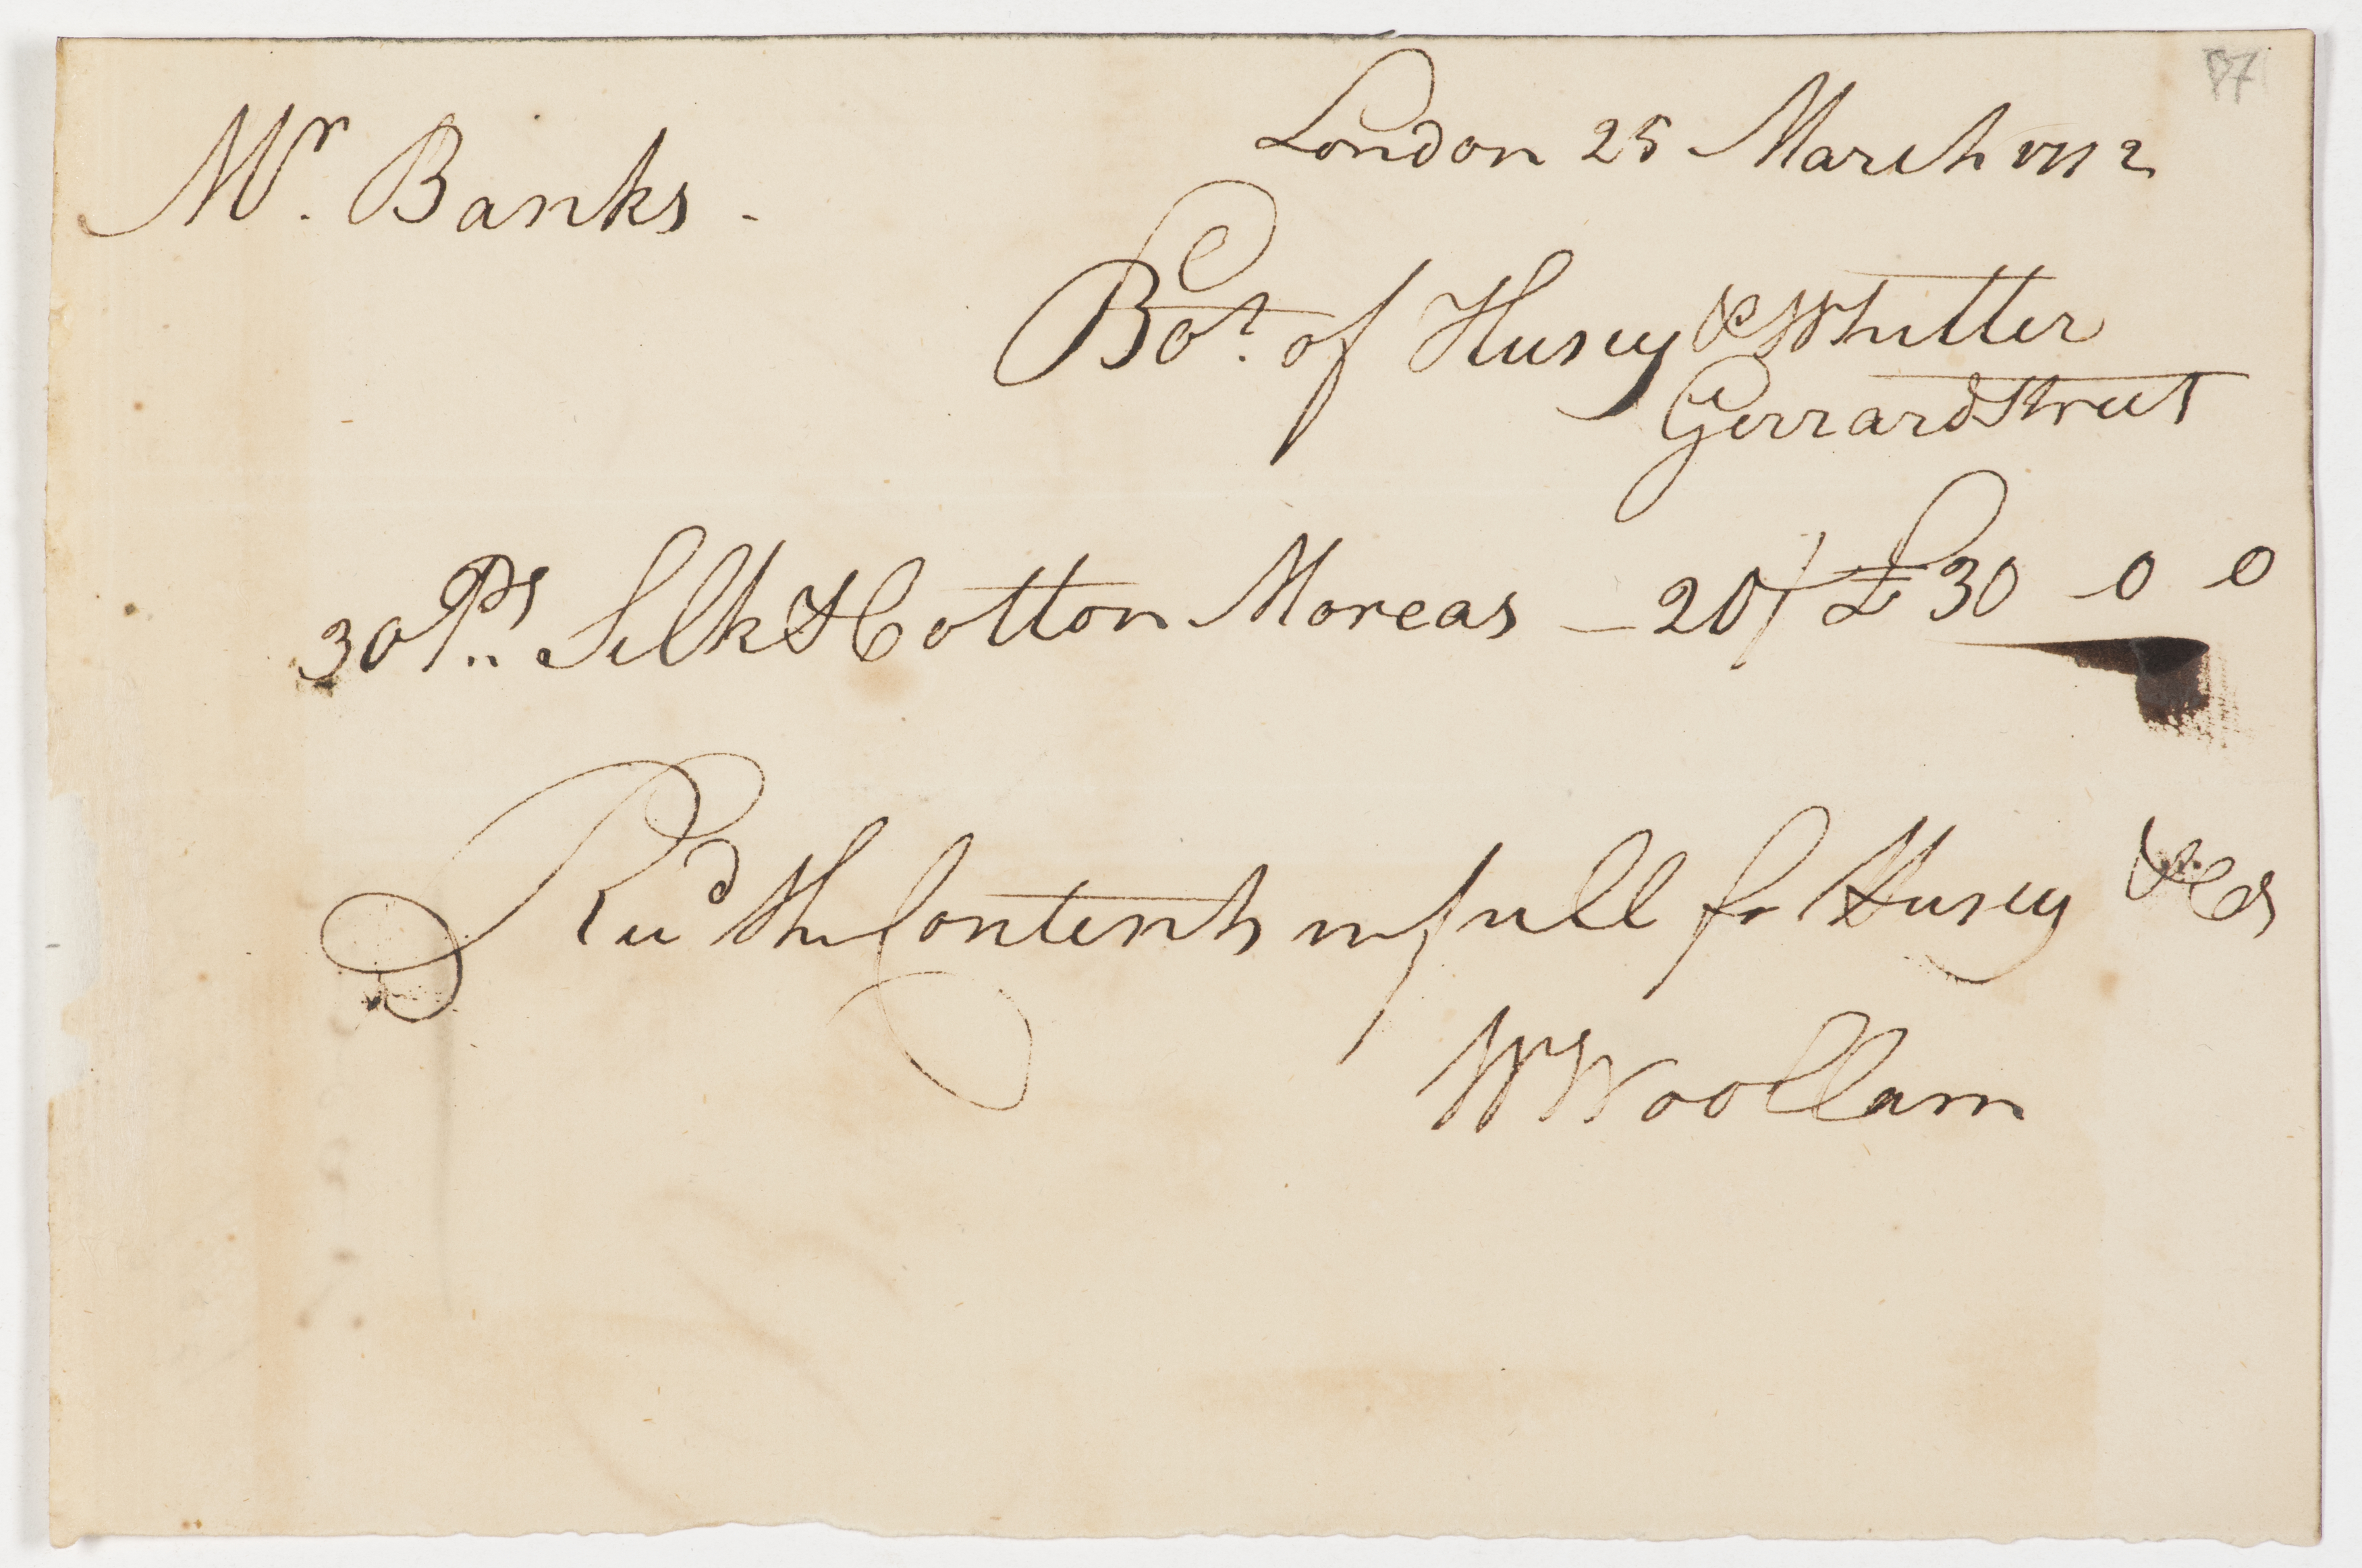 87
London 25 March 1772
Mr. Banks -
Bot. of Husey & Whitter
Gerrard Street
30 Ps.. Silk & Cotton Moreas - 20/ £ 30 - 0 0
Recd the Contents in full for Husey & Co
W Woollam